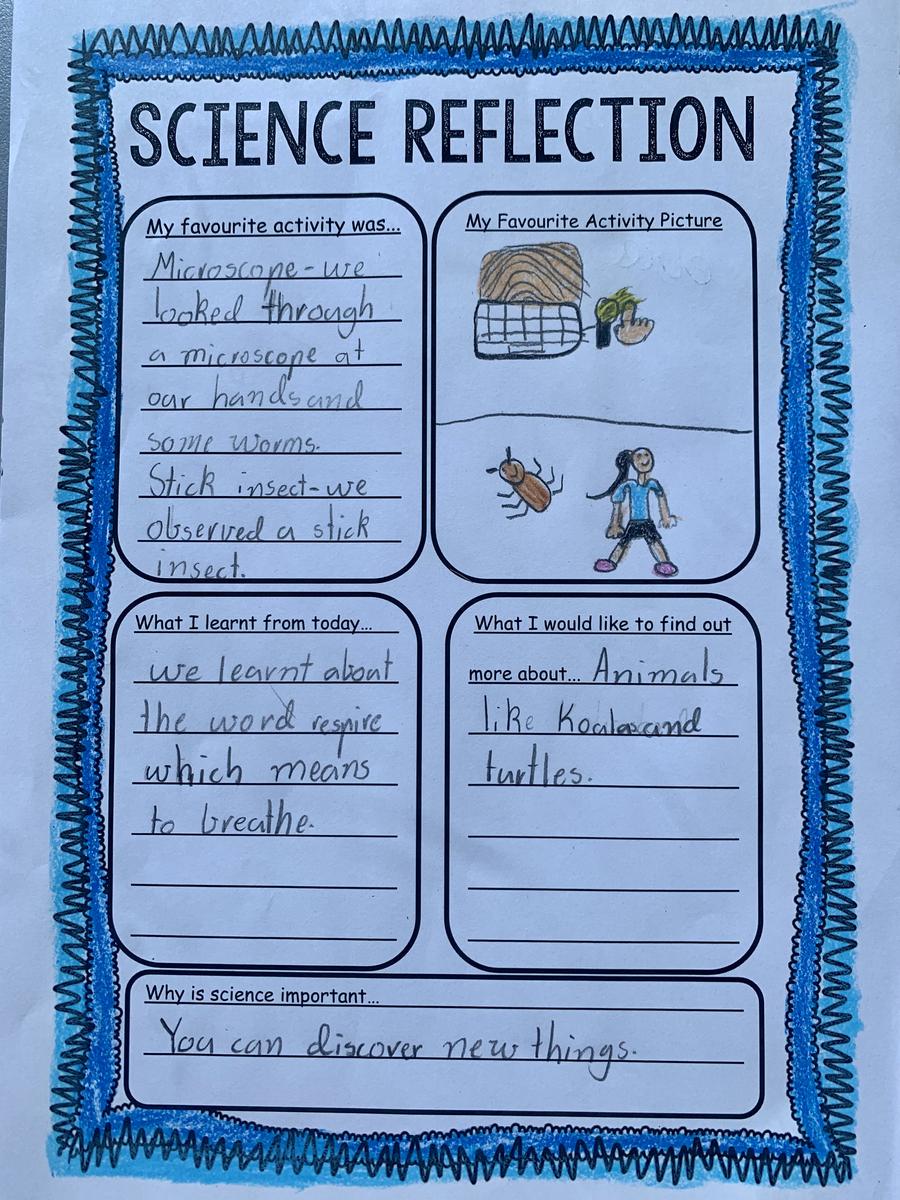 SCIENCE REFLECTION
My favourite activity was...
Microscope-we
looked through
a microscope at
our hands and
some worms.
Stick insect-we
observed a stick
insect.
My Favourite Activity Picture
What I learnt from today...
we learnt about
the word respire
which means
to breathe.
What I would like to find out
more about... Animals
like Koalas and
turtles.
Why is science important...
You can discover new things.